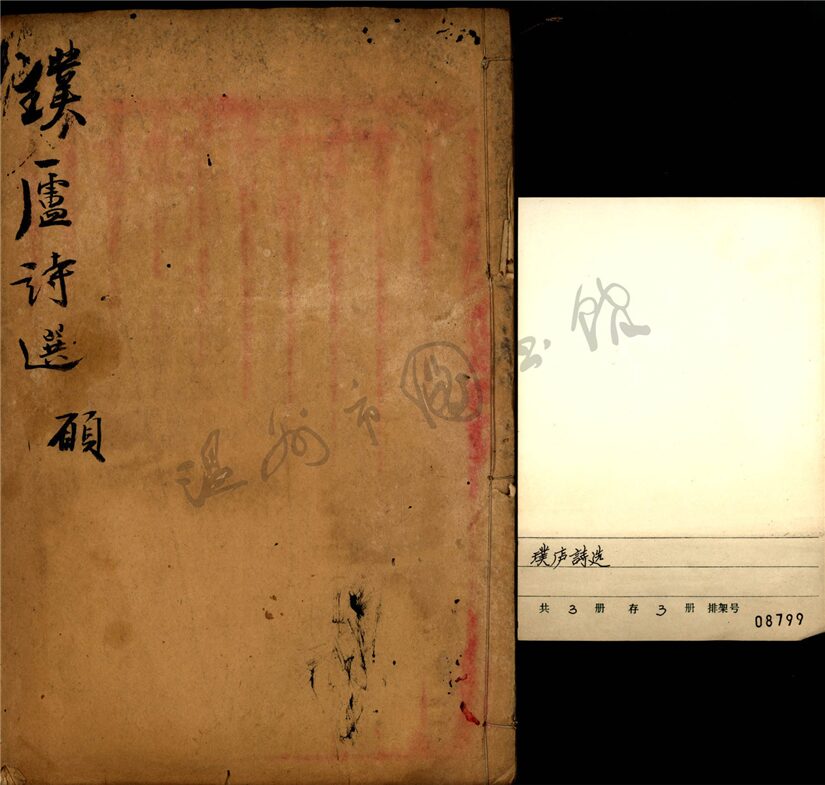 璞廬詩選 願
温州市圖书館
璞庐詩选
共 3 册 存 3 册 排架号
08799